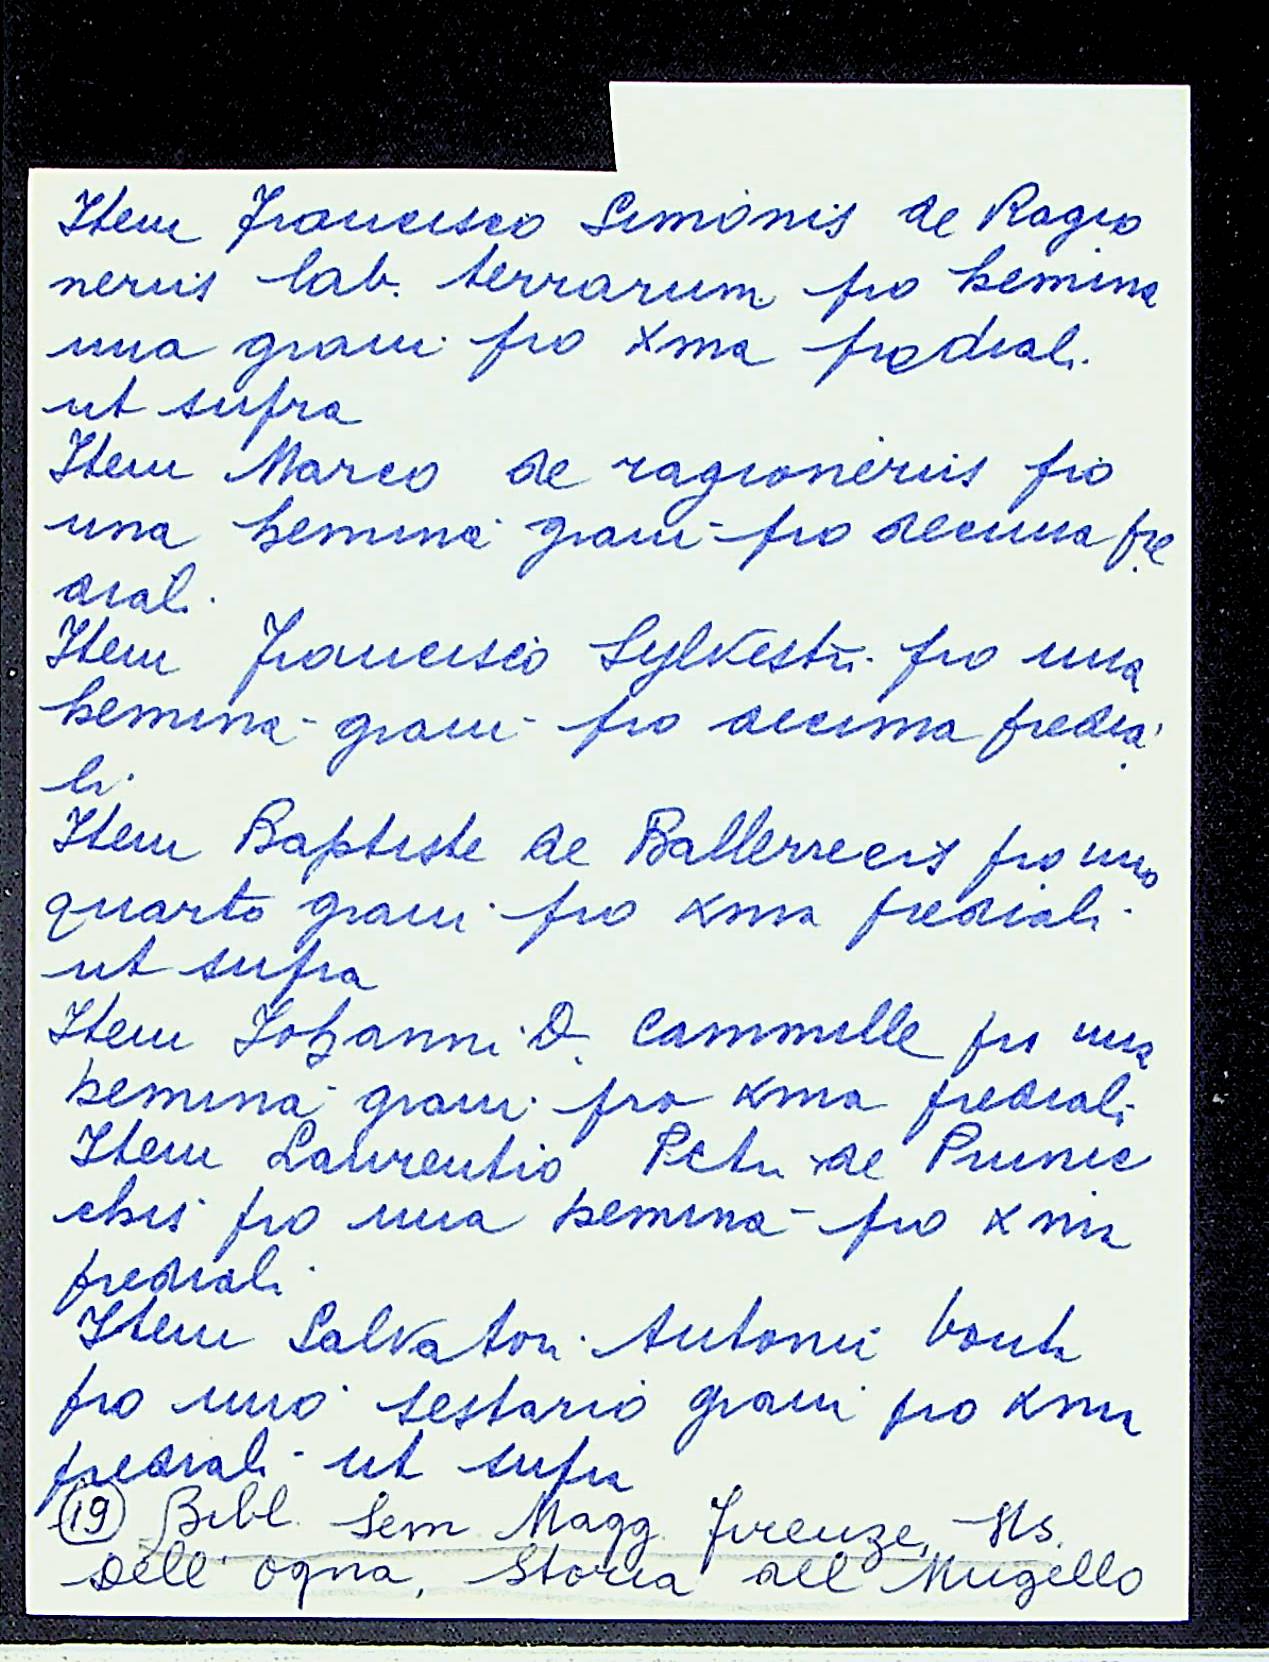 Item Francisco Simonis de Ragio
neriis lab. terrarum pro hemina
una grani pro xma prediali
ut supra
Item Marco de ragioneriis pro
una hemina grani pro decima pre
diali
Item Francisco Sylvestri pro una
hemina grani pro decima predia
li
Item Baptiste de Ballerrecis pro uno
quarto grani pro xma prediali
ut supra
Item Iohanni D. Cammille pro una
hemina grani pro xma prediali
Item Laurentio Petri de Prunec
chis pro una hemina pro xma
prediali
Item Salvatori Antonii bonti
pro uno sestario grani pro xma
prediali ut supra
(19) Bibl. Sem Magg. Firenze, Ms.
Dell'Ogna, Storia del Mugello